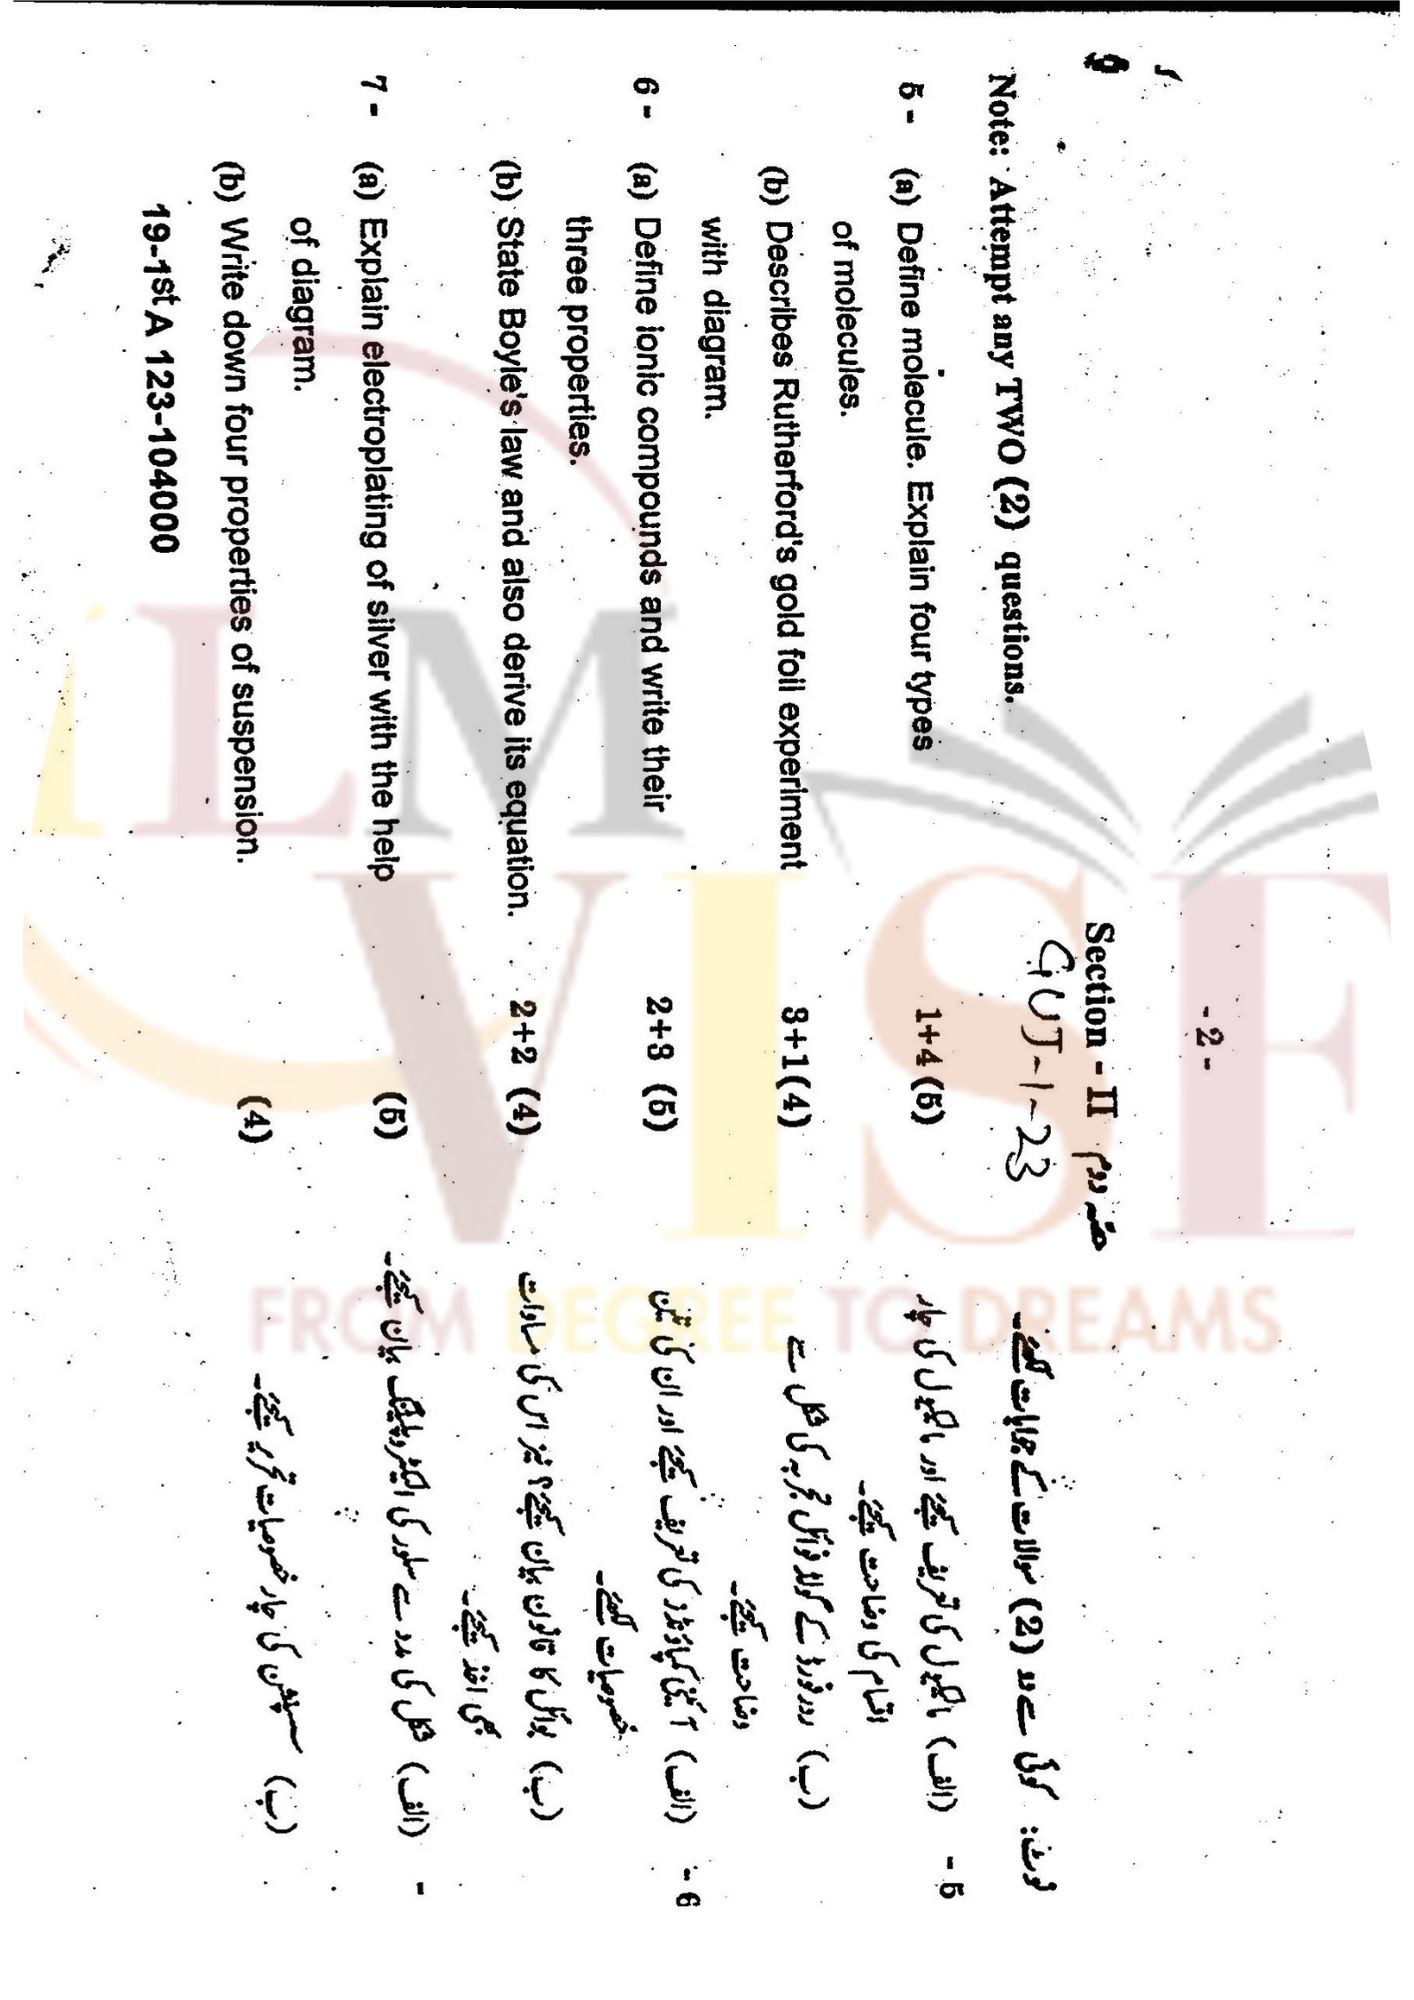 -2-
Section - II حصہ دوم
GUJ-1-23
Note: Attempt any TWO (2) questions.
نوٹ: کوئی سے دو (2) سوالات کے جوابات لکھئے۔
5 - (a) Define molecule. Explain four types
of molecules.
1+4 (5)
5 - (الف) مالیکیول کی تعریف کیجئے اور مالیکیول کی چار
اقسام کی وضاحت کیجئے۔
(b) Describes Rutherford's gold foil experiment
with diagram.
3+1(4)
(ب) ردرفورڈ کے گولڈ فوائل تجربہ کی شکل سے
وضاحت کیجئے۔
6 - (a) Define ionic compounds and write their
three properties.
2+3 (5)
6 - (الف) آئیونی کمپاؤنڈز کی تعریف کیجئے اور ان کی تین
خصوصیات لکھئے۔
(b) State Boyle's law and also derive its equation.
2+2 (4)
(ب) بوائل کا قانون بیان کیجئے؟ نیز اس کی مساوات
بھی اخذ کیجئے۔
7 - (a) Explain electroplating of silver with the help
of diagram.
(5)
- (الف) شکل کی مدد سے سلور کی الیکٹروپلیٹنگ بیان کیجئے۔
(b) Write down four properties of suspension.
(4)
(ب) سسپنشن کی چار خصوصیات تحریر کیجئے۔
19-1st A 123-104000
ILM
VISE
FROM DEGREE TO DREAMS